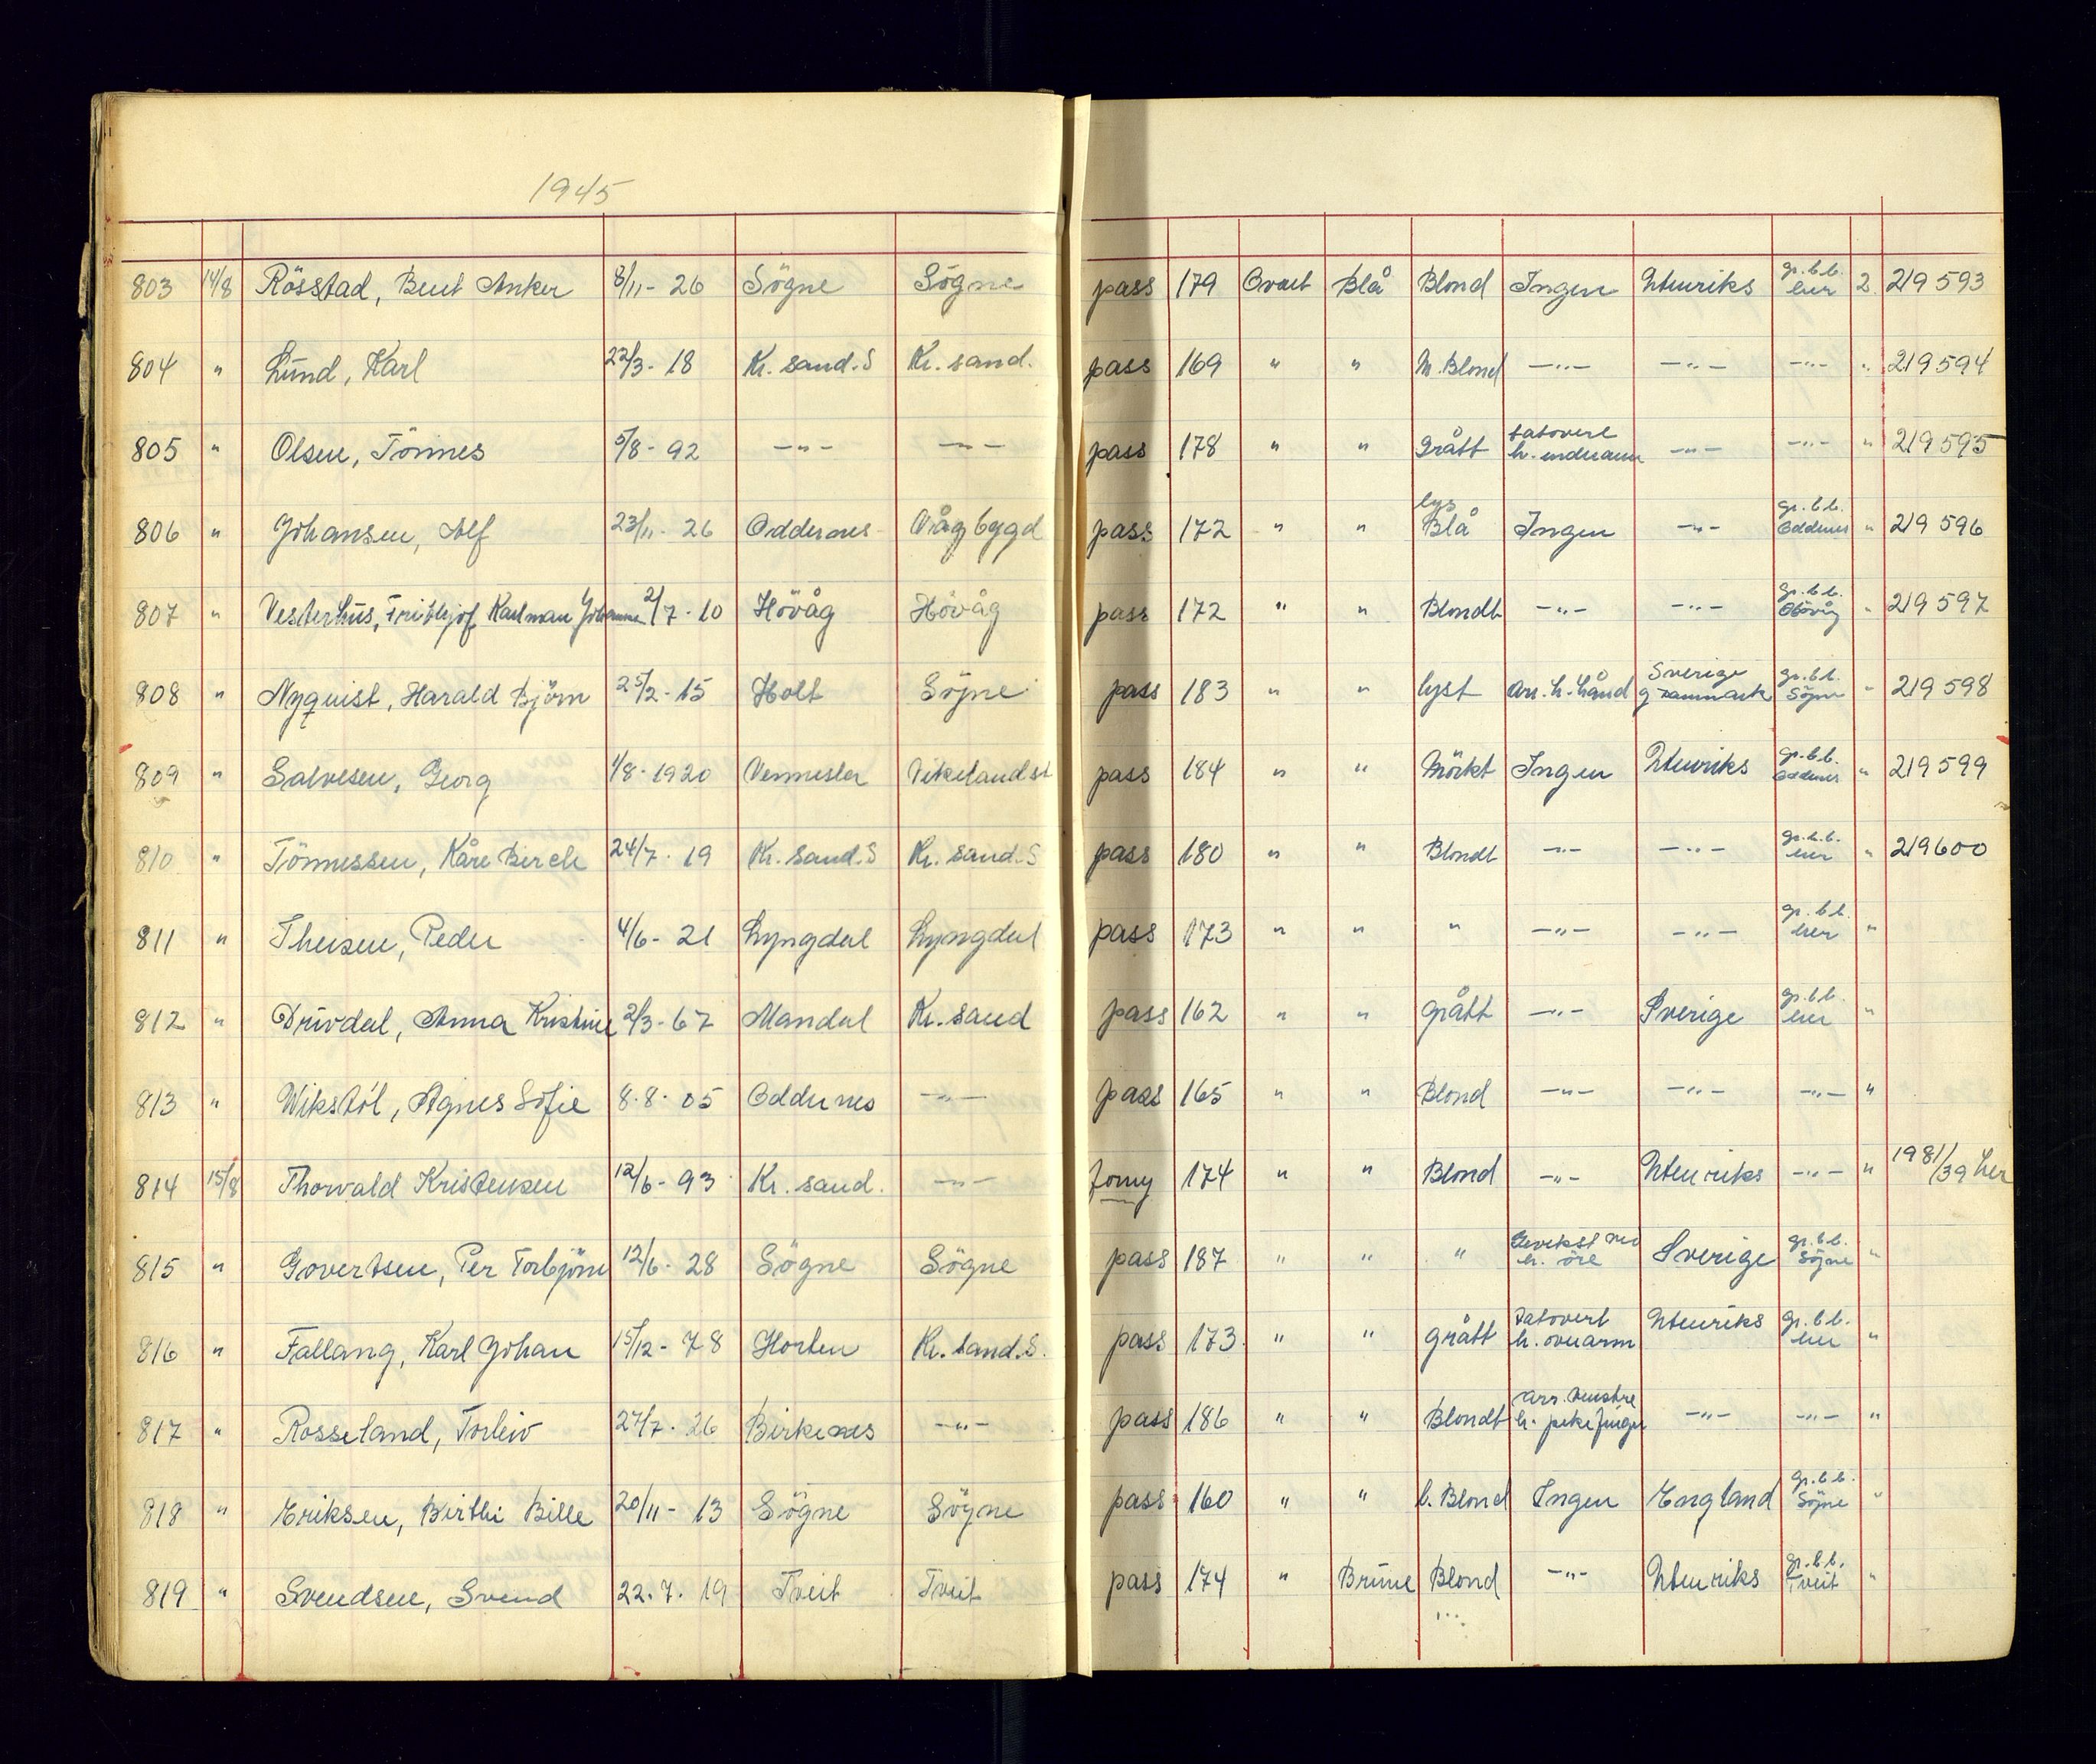 1945
803 14/8 Rösstad, Bent Anker 8/11-26 Sögne Sögne pass 179 Ovalt Blå Blond Ingen Utenriks gr.b.b. her 2. 219593
804 " Lund, Karl 22/3-18 Kr.sand.S Kr.sand. pass 169 " " M.Blond -"- -"- -"- " 219594
805 " Olsen, Tönnes 5/8-92 -"- -"- pass 178 " " Grått tatovert h. underarm -"- -"- " 219595
806 " Johansen, Alf 23/11-26 Oddernes Vågbygd pass 172 " " lys Blå Ingen -"- gr.b.b. Oddernes " 219596
807 " Vesterhus, Frithjof Karlman Johannes 2/7-10 Hövåg Hövåg pass 172 " " Blondt -"- -"- gr.b.b. Hövåg " 219597
808 " Nyquist, Harald Björn 25/2-15 Holt Sögne pass 183 " " lyst Arr. h. hånd Sverige og Danmark gr.b.b. Sögne " 219598
809 " Salvesen, Georg 1/8-1920 Vennesla Vikeland st pass 184 " " Mörkt Ingen Utenriks gr.b.b. Oddernes " 219599
810 " Tönnessen, Kåre Berch 24/7-19 Kr.sand.S Kr.sand.S pass 180 " " Blondt -"- -"- gr.b.b. her " 219600
811 " Theisen, Peder 4/6-21 Lyngdal Lyngdal pass 173 " " " -"- -"- gr.b.b. her "
812 " Drivdal, Anna Kristine 2/3-67 Mandal Kr.sand pass 162 " " grått -"- Sverige gr.b.b. her "
813 " Wikstöl, Agnes Sofie 8.8.05 Oddernes -"- pass 165 " " Blond -"- -"- -"- "
814 15/8 Thorvald Kristensen 12/6-93 Kr.sand. -"- forny 174 " " Blond -"- Utenriks -"- " 1981/39 her
815 " Govertsen, Per Torbjörn 12/6-28 Sögne Sögne pass 187 " " " Gevekst ved h. öre Sverige gr.b.b. Sögne "
816 " Fallang, Karl Johan 15/12-78 Horten Kr.sand.S. pass 173. " " grått Tatovert h. overarm Utenriks gr.b.b. her "
817 " Rosseland, Torleiv 27/7-26 Birkenes -"- pass 186 " " Blondt arr. venstre h. pekefinger -"- -"- "
818 " Eriksen, Birthi Bille 20/11-13 Sögne Sögne pass 160 " " l. Blond Ingen England gr.b.b. Sögne "
819 " Svendsen, Svend 22.7.19 Tveit Tveit pass 174 " Brune Blond -"- Utenriks gr.b.b. Tveit "